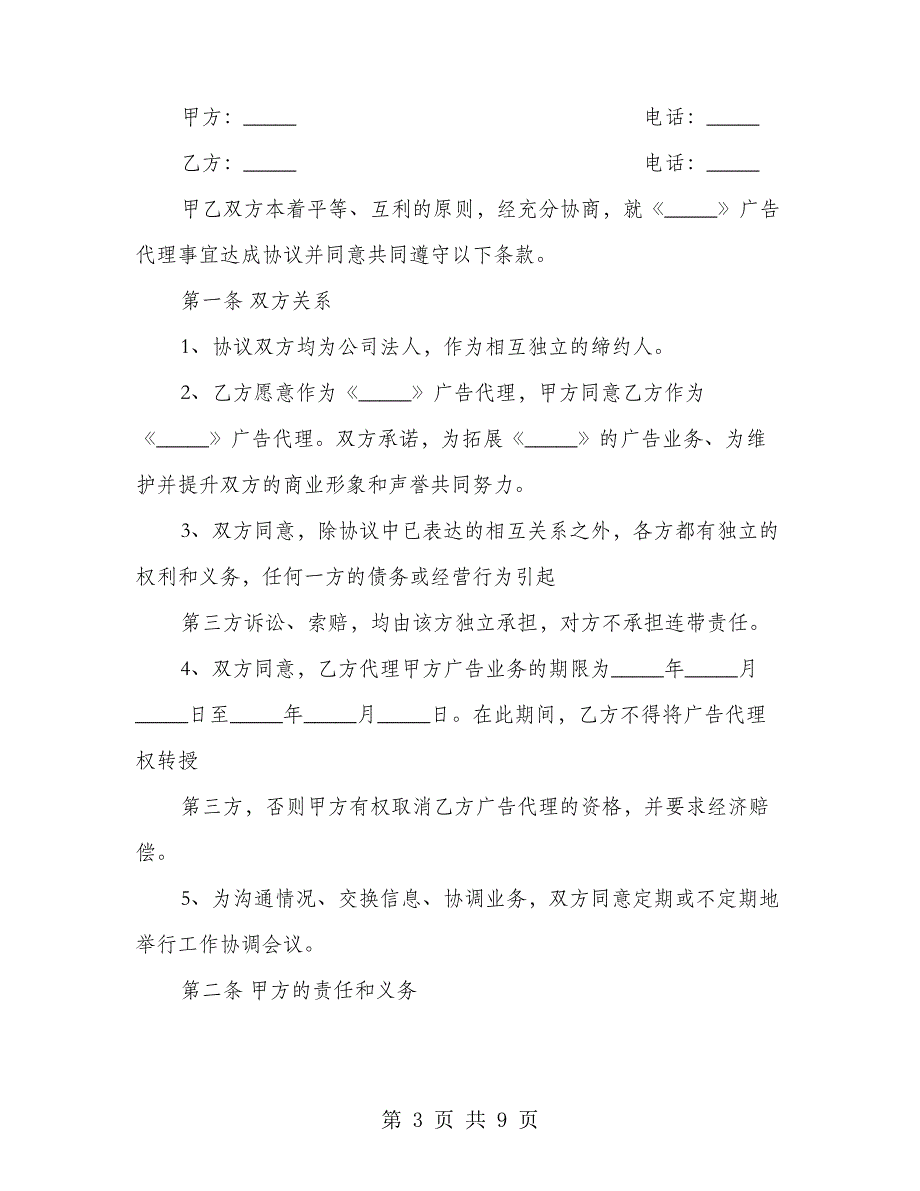 甲方：_____ 电话：_____
乙方：_____ 电话：_____
甲乙双方本着平等、互利的原则，经充分协商，就《_____》广告
代理事宜达成协议并同意共同遵守以下条款。
第一条 双方关系
1、协议双方均为公司法人，作为相互独立的缔约人。
2、乙方愿意作为《_____》广告代理，甲方同意乙方作为
《_____》广告代理。双方承诺，为拓展《_____》的广告业务、为维
护并提升双方的商业形象和声誉共同努力。
3、双方同意，除协议中已表达的相互关系之外，各方都有独立的
权利和义务，任何一方的债务或经营行为引起
第三方诉讼、索赔，均由该方独立承担，对方不承担连带责任。
4、双方同意，乙方代理甲方广告业务的期限为_____年_____月
_____日至_____年_____月_____日。在此期间，乙方不得将广告代理
权转授
第三方，否则甲方有权取消乙方广告代理的资格，并要求经济赔
偿。
5、为沟通情况、交换信息、协调业务，双方同意定期或不定期地
举行工作协调会议。
第二条 甲方的责任和义务
第 3 页 共 9 页